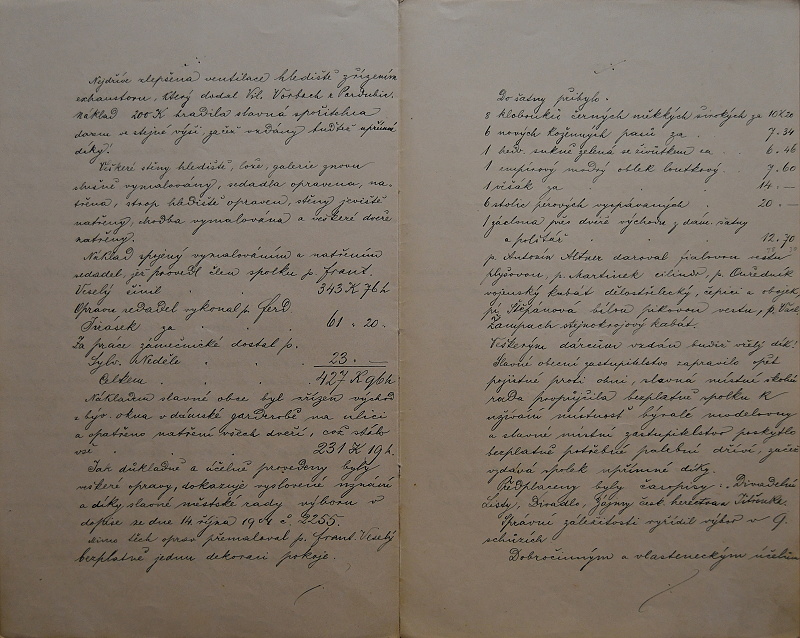 Nejdříve zlepšena ventilace hlediště zřízením
exhaustoru, který dodal Vil. Vorbach z Pardubic.
Náklad 200 K hradila slavná spořitelna
začež vzdány buďtež upřímné
díky!
Veškeré stěny hlediště, lože, galerie znovu
slušně vymalovány, sedadla opravena, na-
třena, strop hlediště opraven, stěny jeviště
natřeny, chodba vymalována a veškeré dveře
natřeny.
Náklad spojený vymalováním a natřením
sedadel, jež provedl člen spolku p. Frant.
Veselý činil 343 K 76 h
Opravu sedadel vykonal p. Ferd.
Jirasek za . . . 61 „ 20 „
Za práce zámečnické dostal p.
Sylv. Neděle . . . 23 „ —
Celkem . . . 427 K 96 h
Nákladem slavné obce byl zřízen východ
z býv. okna v dámské garderobě na ulici
a opatřeno natření všech dveří, což stálo
vše . . . 231 K 19 h.
Jak důkladně a účelně provedeny byly
veškeré opravy, dokazuje vyslovené uznání
a díky slavné městské rady výboru v
dopise ze dne 14. října 1904 č. 2255.
Mimo těch oprav přemaloval p. Frant. Veselý
bezplatně jednu dekoraci pokoje.
Do šatny přibylo:
8 klobouků černých měkkých širokých za 10 K 20
6 nových kožených pasů za . 7 „ 30
1 sukně zelená se živůtkem za . 6 „ 46
1 empirový modrý oblek loutkový . 7 „ 60
1 věšák za . . . 14 „ —
6 stolic pérových vyspravených . 20 „ —
1 záclona přes dveře východu z dám. šatny
a polštář . . . 12 „ 70
p. Antonín Altner daroval fialovou vestu
plyšovou, p. Martinek cilindr, p. Ouředník
vojenský kabát dělostřelecký, čepici a obojek,
pí. Štěpánová bílou pikovou vestu, p.
Žampach stejnokrojový kabát.
Veškerým dárcům vzdán budiž vřelý dík!
Slavné obecní zastupitelstvo zapravilo opět
pojistné proti ohni, slavná místní školní
rada propůjčila bezplatně spolku k
užívání místnost bývalé modelovny
a slavné místní zastupitelstvo poskytlo
bezplatně potřebné palební dříví, začež
vzdává spolek upřímné díky.
Předplaceny byly časopisy: „Divadelní
Listy, Divadlo, Zájmy česk. herectva a Jitřenka.
Správní záležitosti vyřídil výbor v 9.
schůzích
Dobročinným a vlasteneckým účelům